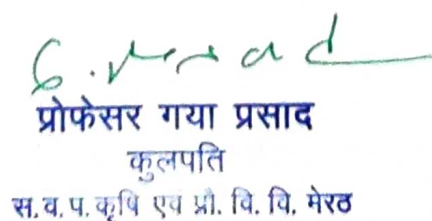 G. Prasad
प्रोफेसर गया प्रसाद
कुलपति
स.व.प. कृषि एवं प्रौ. वि. वि. मेरठ